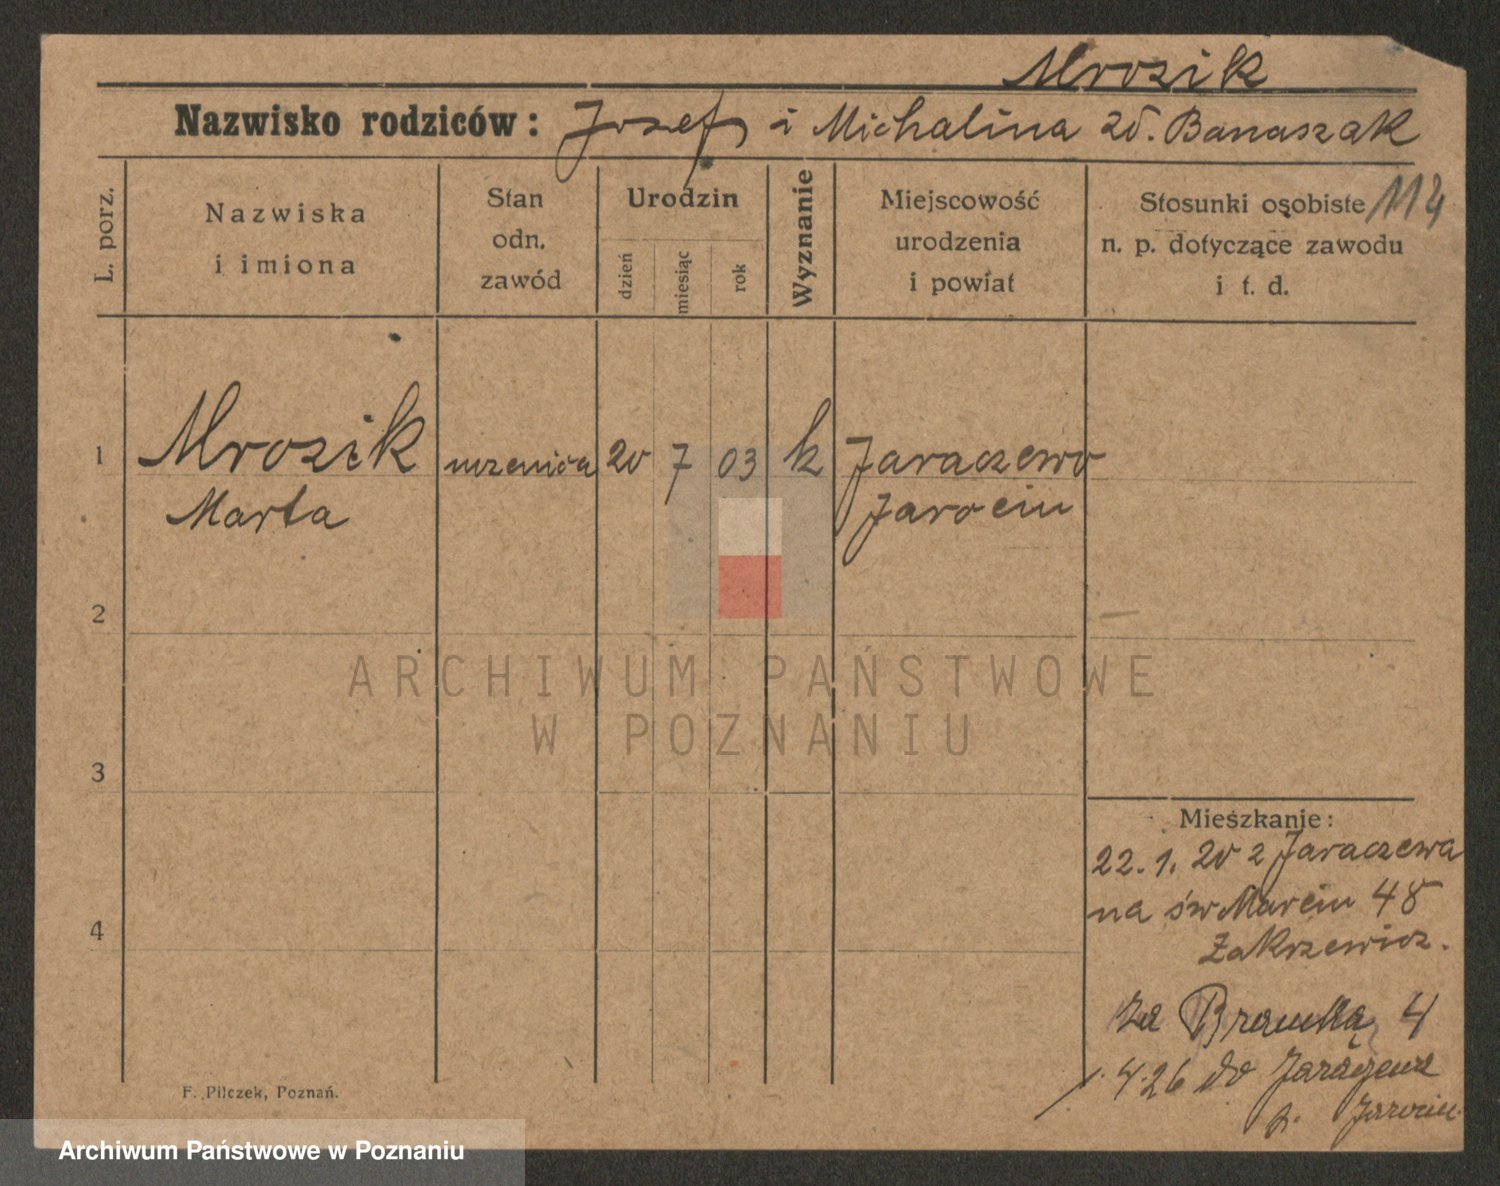 Mrozik
Nazwisko rodziców: Josef i Michalina zd. Banaszak
L. porz.
Nazwiska
i imiona
Stan
odn.
zawód
Urodzin
dzień
miesiąc
rok
Wyznanie
Miejscowość
urodzenia
i powiat
Stosunki osobiste 114
n. p. dotyczące zawodu
i t. d.
1 Mrozik uczenica 20 7 03 k Jaraczewo
Marta Jarocin
2
3
4
Mieszkanie:
22.1.20 z Jaraczewa
na św Marcin 48
Zakrzewicz.
Za Bramką 4
1.4.26 do Jaraczewa
p. Jarocin
F. Pilczek, Poznań.
ARCHIWUM PAŃSTWOWE
W POZNANIU
Archiwum Państwowe w Poznaniu